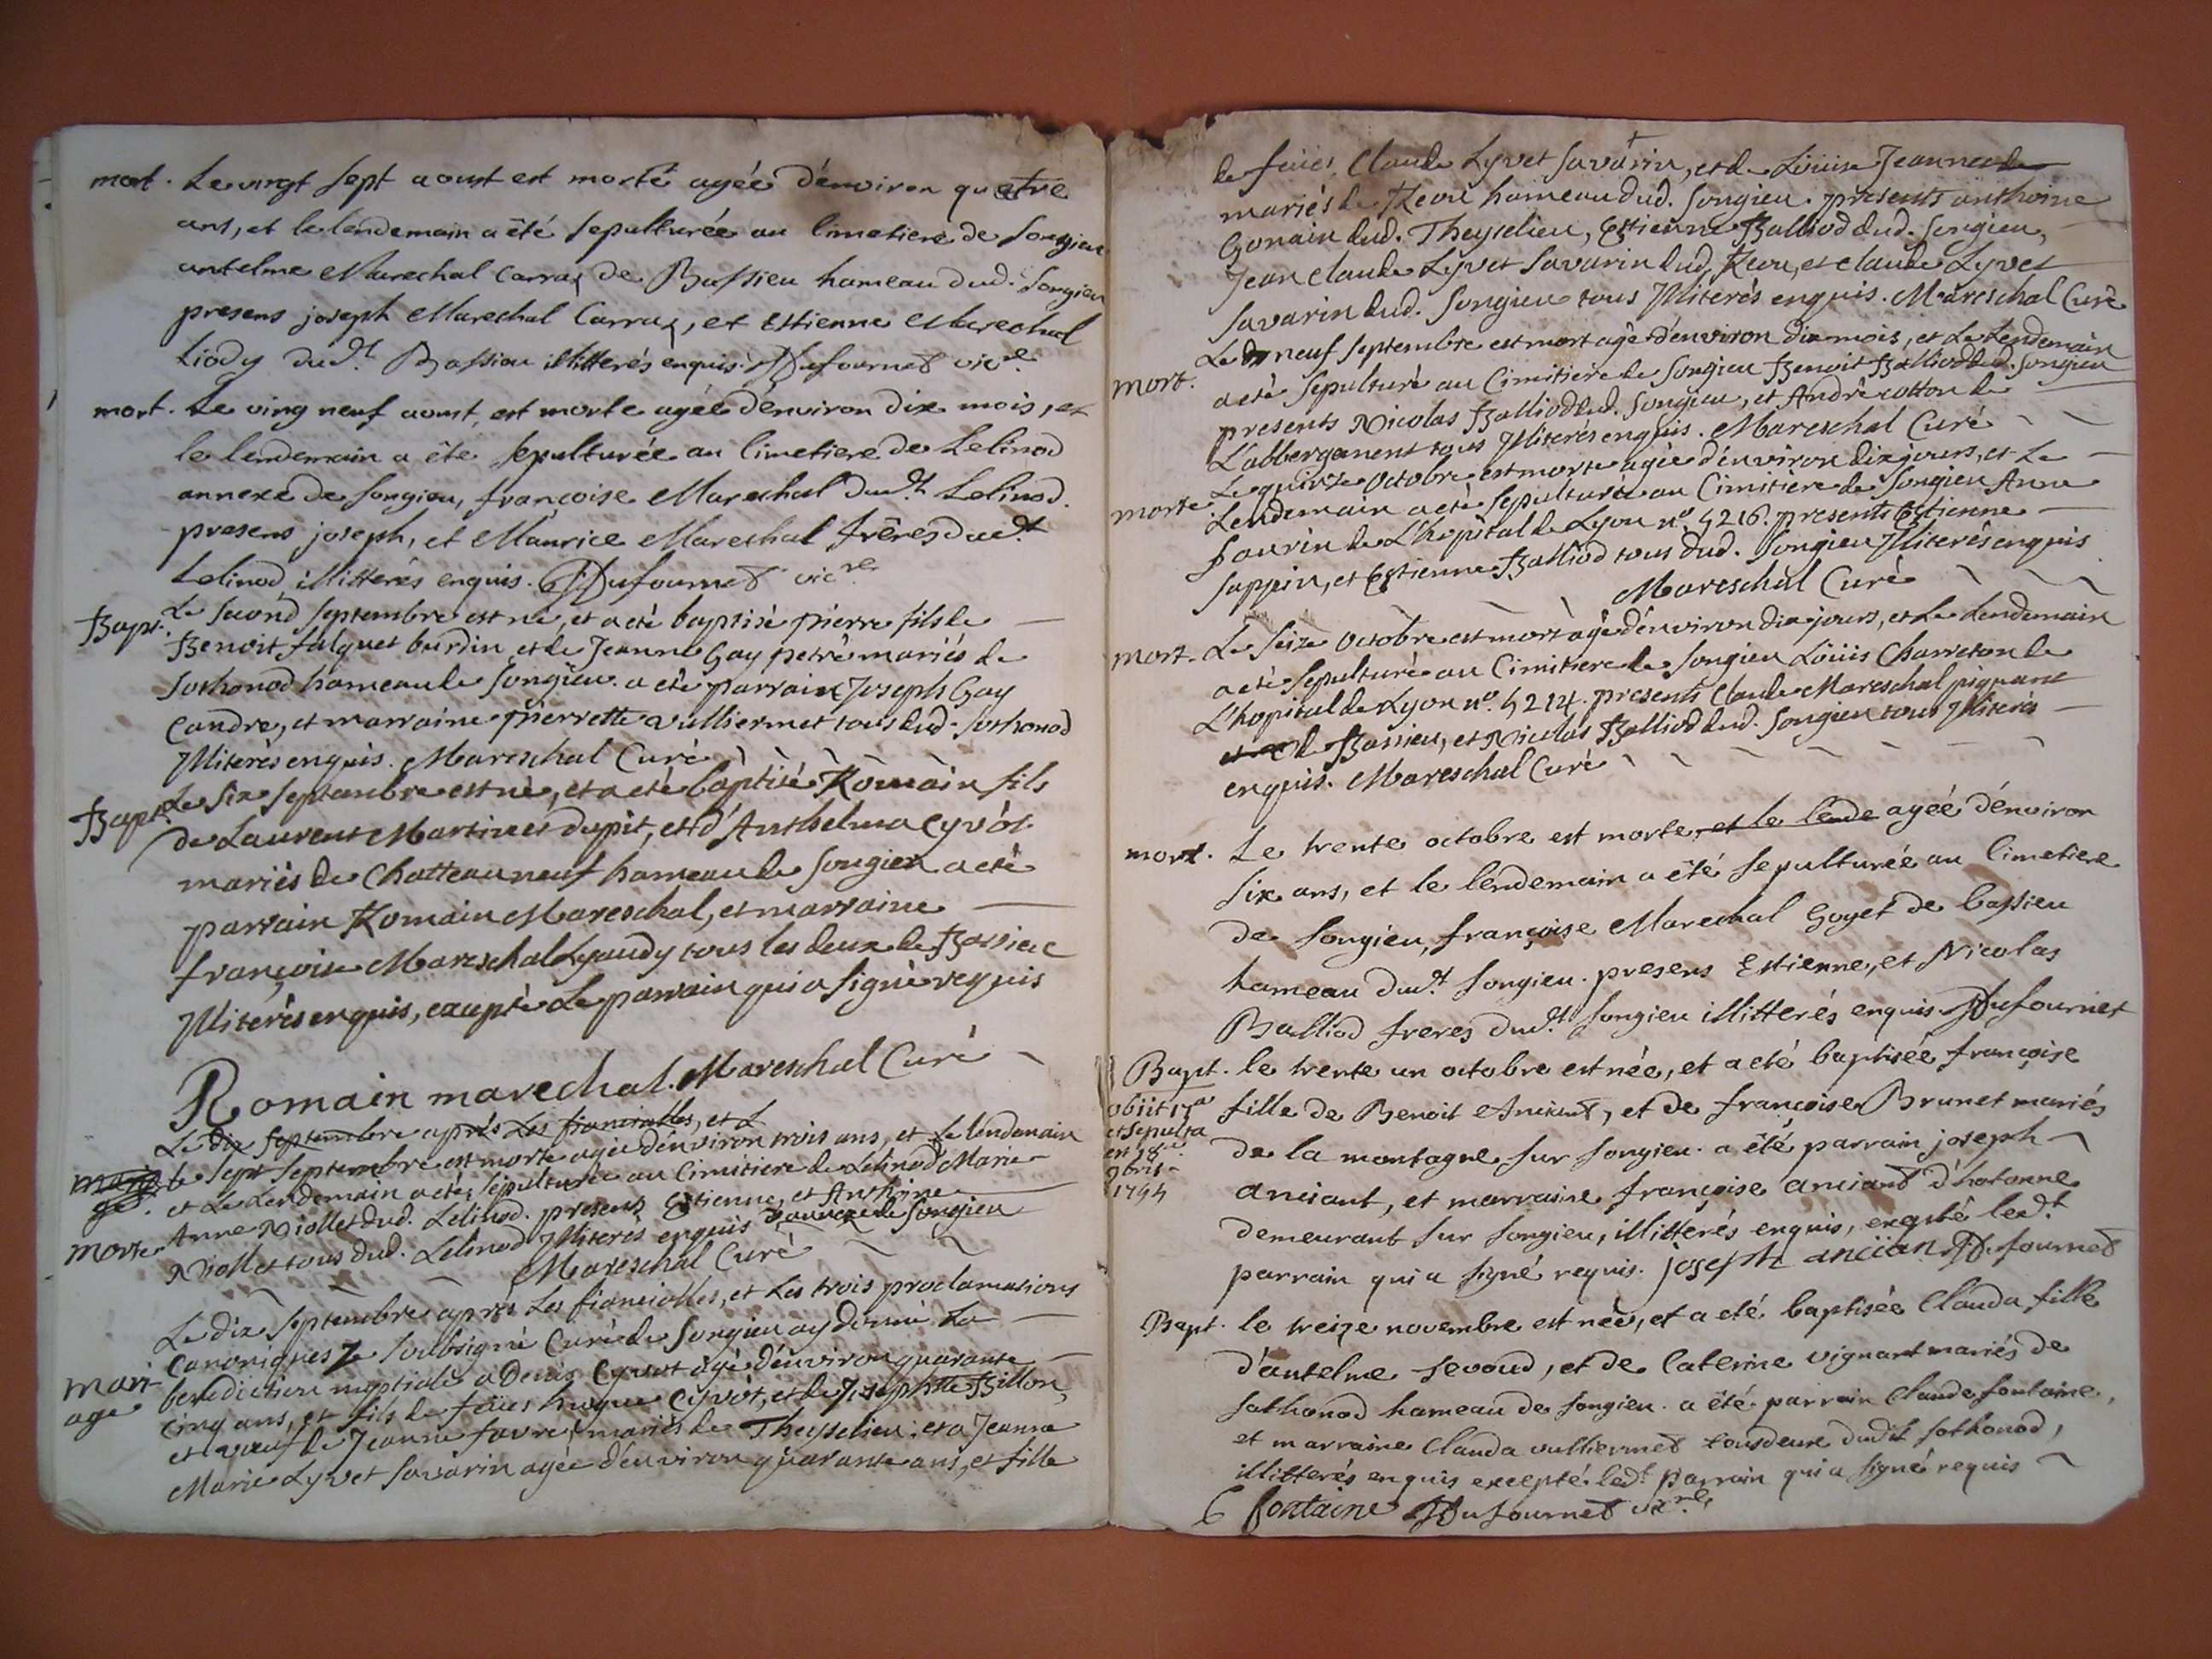 mort. Le vingt sept aoust est morte agée d'environ quatre
ans, et le lendemain a êté sepulturée au Cimetiere de Songieu
antelme Marechal Carraz de Bassieu hameau dud. Songieu
presens joseph Marechal Carraz, et Estienne Marechal
Liody dud.t Bassieu illitterés enquis. Dufournet vic.re
mort. Le ving neuf aoust, est morte agée d'environ dix mois, et
le lendemain a éte sepulturée au Cimetiere de Lelinod
annexe de songieu, françoise Marechal dud.t Lelinod.
presens joseph, et Maurice Marechal frères dud.t
Lelinod illitterés enquis. Dufournet vic.re
Bapt. Le second septembre est né, et a eté baptisé pierre fils de
Benoit falquet burdin et de Jeanne Gay petre mariés de
Sothonod hameau de Songieu. a eté parrain Joseph Gay
Candre, et marraine pierrette vulliermet tous dud. Sothonod
Illiterés enquis. Mareschal Curé
Bapt. Le six septembre est né, et a eté baptisé Romain fils
de Laurent Martinet dupit, et d'Anthelma Cyvôt
mariés de Chatteauneuf hameau de Songieu a eté
parrain Romain Mareschal, et marraine
françoise Mareschal Lyaudy tous les deux de Bassieu
Illiterés enquis, excepté Le parrain qui a signé requis
Romain marechal. Mareschal Curé
Le dix septembre aprés Les fianciolles, et L
maria le sept septembre est morte agée d'environ trois ans, et le lendemain
ge. et Le Lendemain a eté sepulturée au Cimitiere de Lelinod Marie
morte Anne Niollet dud. Lelinod. presens Estienne, et Anthoine
Niollet tous dud. Lelinod Illiterés enquis annexe de Songieu
Mareschal Curé
Le dix septembre aprés Les fianciolles, et Les trois proclamations
Canoniques Je soubsigné Curé de Songieu ay donné La
mari- benediction nuptiale a Denis Cyvot agé d'environ quarante
age cinq ans, et fils de feües hugue Cyvôt, et de Josephtte Billon,
et veuf de Jeanne favre, mariés de Theyselieu; et a Jeanne
Marie Lyvet Savarin agée d'environ quarante ans, et fille
de feües, Claude Lyvet Savarin, et de Loüise Jeanne
mariés de Reou hameau dud. Songieu. presents anthoine
Gonain dud. Theyselieu, Estienne Balliod dud. Songieu,
Jean Claude Lyvet Savarin dud. Reou, et Claude Lyvet
Savarin dud. Songieu tous Illiterés enquis. Mareschal Curé
Le neuf septembre est mort agé d'environ dix mois, et Le Lendemain
mort. a eté sepulturé au Cimitiere de Songieu Benoit Balliod dud. Songieu
presents Nicolas Balliod dud. Songieu, et André cotton de
L'abbergement tous Illiterés enquis. Mareschal Curé
Le quinze Octobre est morte agée d'environ dix jours, et Le
morte. Lendemain a eté sepulturée au Cimitiere de Songieu Anne
paurin de L'hopital de Lyon n.o 4216. presents Estienne
Sappin, et Estienne Balliod tous dud. Songieu Illiterés enquis
Mareschal Curé
mort. Le seize Octobre est mort agé d'environ dix jours, et Le Lendemain
a eté sepulturé au Cimitiere de Songieu Loüis Charreton de
L'hopital de Lyon n.o 4214. presents Claude Mareschal pignant
de Bassieu, et Nicolas Balliod dud. Songieu tous Illiterés
enquis. Mareschal Curé
mort. Le trente octobre est morte, et le lende agée d'environ
six ans, et le lendemain a êté sepulturée au Cimetiere
de songieu, françoise Marechal Goyet de bassieu
hameau dud.t songieu. presens Estienne, et Nicolas
Balliod freres dud.t songieu illitterés enquis. Dufournet
Bapt. le trente un octobre est née, et a eté baptisée françoise
obiit 17a fille de Benoit Anciant, et de françoise Brunet mariés
et sepulta
en 18a de la montagne sur songieu. a été parrain joseph
9bris
1794 anciant, et marraine françoise anciant d'hotonne
demeurant sur songieu, illitterés enquis, exepté led.t
parrain qui a signé requis. joseph anciian Dufournet
Bapt. le treize novembre est née, et a eté baptisée Clauda fille
d'antelme sevoud, et de Caterine vignant mariés de
sothonod hameau de songieu. a été parrain Claude fontaine,
et marraine Clauda vulliermet tous deux dudit sothonod,
illitterés enquis excepté led.t parrain qui a signé requis
C fontaine Dufournet vic.re